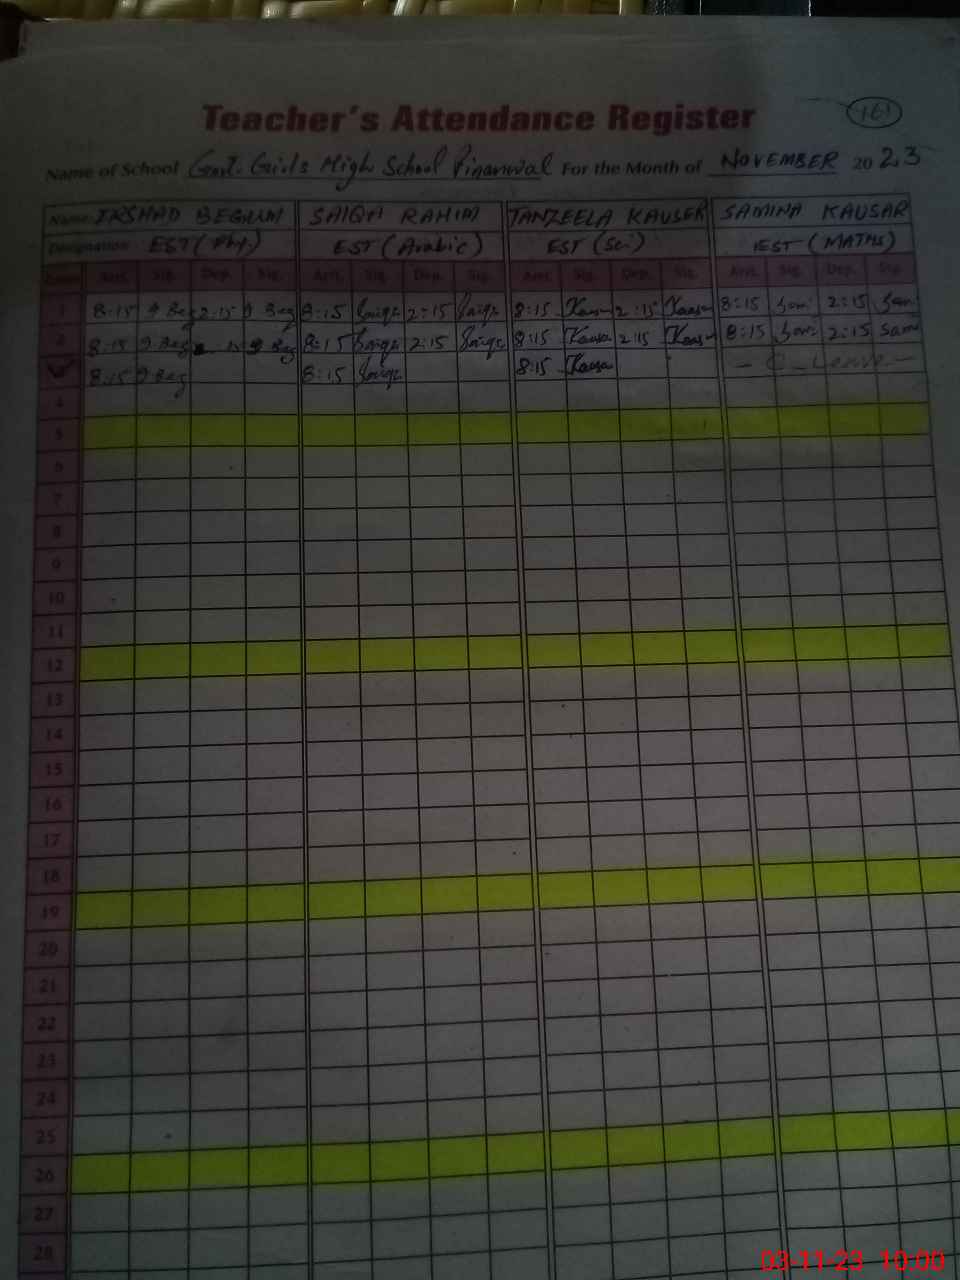 Teacher's Attendance Register
161
Name of School Govt. Girls High School Pinanwal For the Month of NOVEMBER 2023
Name IRSHAD BEGUM SAIQA RAHIM TANZEELA KAUSER SAMINA KAUSAR
Designation EST (Phy) EST (Arabic) EST (Sci) EST (MATHS)
Arri. Sig. Dep. Sig. Arri. Sig. Dep. Sig. Arri. Sig. Dep. Sig. Arri. Sig. Dep. Sig.
1 8:15 I Beg 2:15 I Beg 8:15 Saiqa 2:15 Saiqa 8:15 Kauser 2:15 Kauser 8:15 Sami 2:15 Sami
2 8:15 I Beg 15 I Beg 8:15 Saiqa 2:15 Saiqa 8:15 Kauser 2:15 Kauser 8:15 Sami 2:15 Sami
8:15 I Beg 8:15 Saiqa 8:15 Kauser - C-Leave -
4
5
6
7
8
9
10
11
12
13
14
15
16
17
18
19
20
21
22
23
24
25
26
27
28
03-11-23 10:00